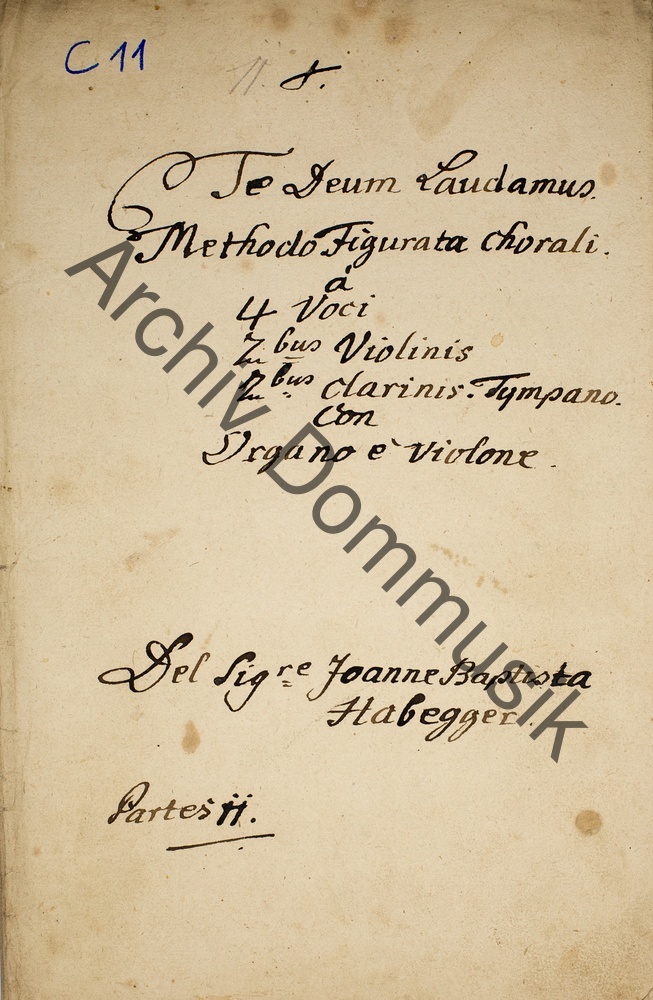 C 11
11. 8.
Te Deum Laudamus.
Methodo Figurata Chorali.
à
4 Voci
2bus Violinis
2bus Clarinis. Tympano.
Con
Organo è Violone.
Del Sigre Joanne Baptista
Habegger.
Partes ii.
Archiv Dommusik